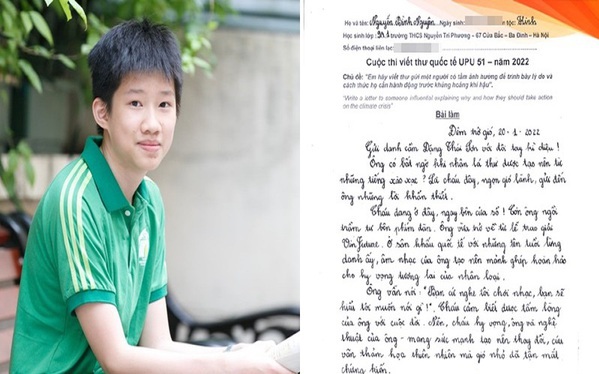 Họ và tên: Nguyễn Bình Nguyên Ngày sinh: tộc: Kinh
Học sinh lớp: trường THCS Nguyễn Tri Phương – 67 Cửa Bắc – Ba Đình – Hà Nội
Số điện thoại liên lạc:
Cuộc thi viết thư quốc tế UPU 51 – năm 2022
Chủ đề: "Em hãy viết thư gửi một người có tầm ảnh hưởng để trình bày lý do và
cách thức họ cần hành động trước khủng hoảng khí hậu".
"Write a letter to someone influential explaining why and how they should take action
on the climate crisis"
Bài làm
Đêm trở gió, 20-1-2022
Gửi danh cầm Đặng Thái Sơn với đôi tay kì diệu!
Ông có bất ngờ khi nhận lá thư được tạo nên từ
những tiếng xào xạc? Là cháu đây, ngọn gió lành, gửi đến
ông những lời khẩn thiết.
Cháu đang ở đây, ngay bên cửa sổ! Còn ông ngồi
trầm tư bên phím đàn. Ông vừa trở về từ lễ trao giải
VinFuture. Ở sân khấu quốc tế với những tên tuổi lừng
danh ấy, âm nhạc của ông tạo nên mảnh ghép hoàn hảo
cho hy vọng tương lai của nhân loại.
Ông vẫn nói: "Bạn cứ nghe tôi chơi nhạc, bạn sẽ
hiểu tôi muốn nói gì!". Cháu cảm biết được tấm lòng
của ông với cuộc đời. Nên, cháu hy vọng, ông và nghệ
thuật của ông - mang sức mạnh tạo nên thay đổi, cứu
vãn thảm họa thiên nhiên mà gió nhỏ đã tận mắt
chứng kiến.